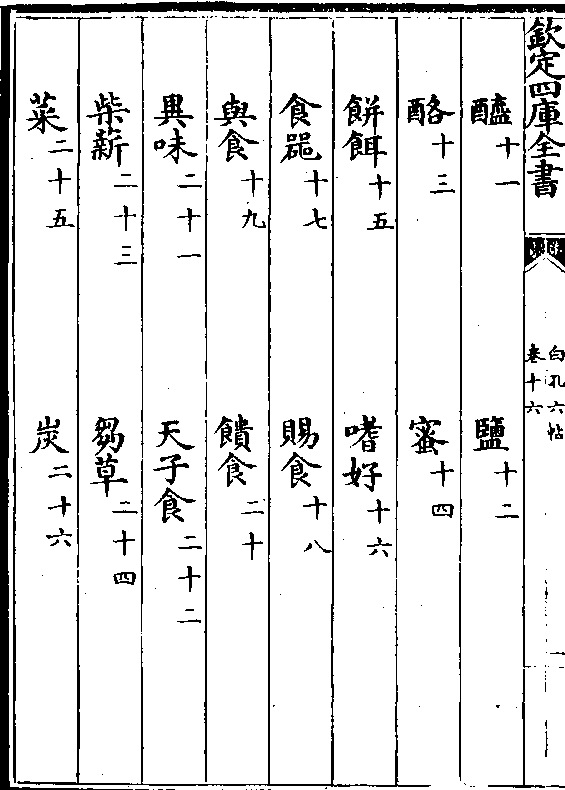 欽定四庫全書
白孔六帖
卷十六
一
醯十一 鹽十二
酪十三 蜜十四
餅餌十五 嗜好十六
食噐十七 賜食十八
與食十九 饋食二十
異味二十一 天子食二十二
柴薪二十三 芻草二十四
菜二十五 炭二十六